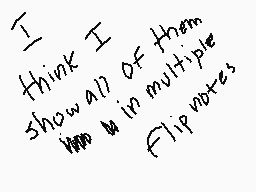 I
think I
show all of them
in multiple
flipnotes